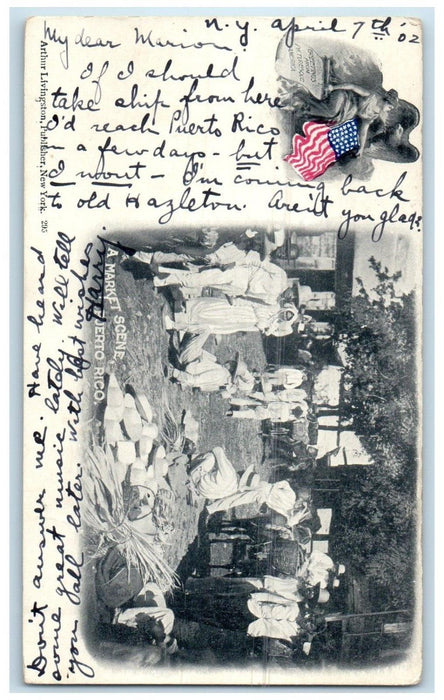 N. Y. April 7th '02
My dear Marion:
If I should
take ship from here
I'd reach Puerto Rico
in a few days - but
I won't - I'm coming back
to old Hazleton. Aren't you glad?
Don't answer me. Have heard
some great music lately. Will tell
you all later. With best wishes
Harry.
Arthur Livingston, Publisher, New York.
A MARKET SCENE,
PUERTO RICO